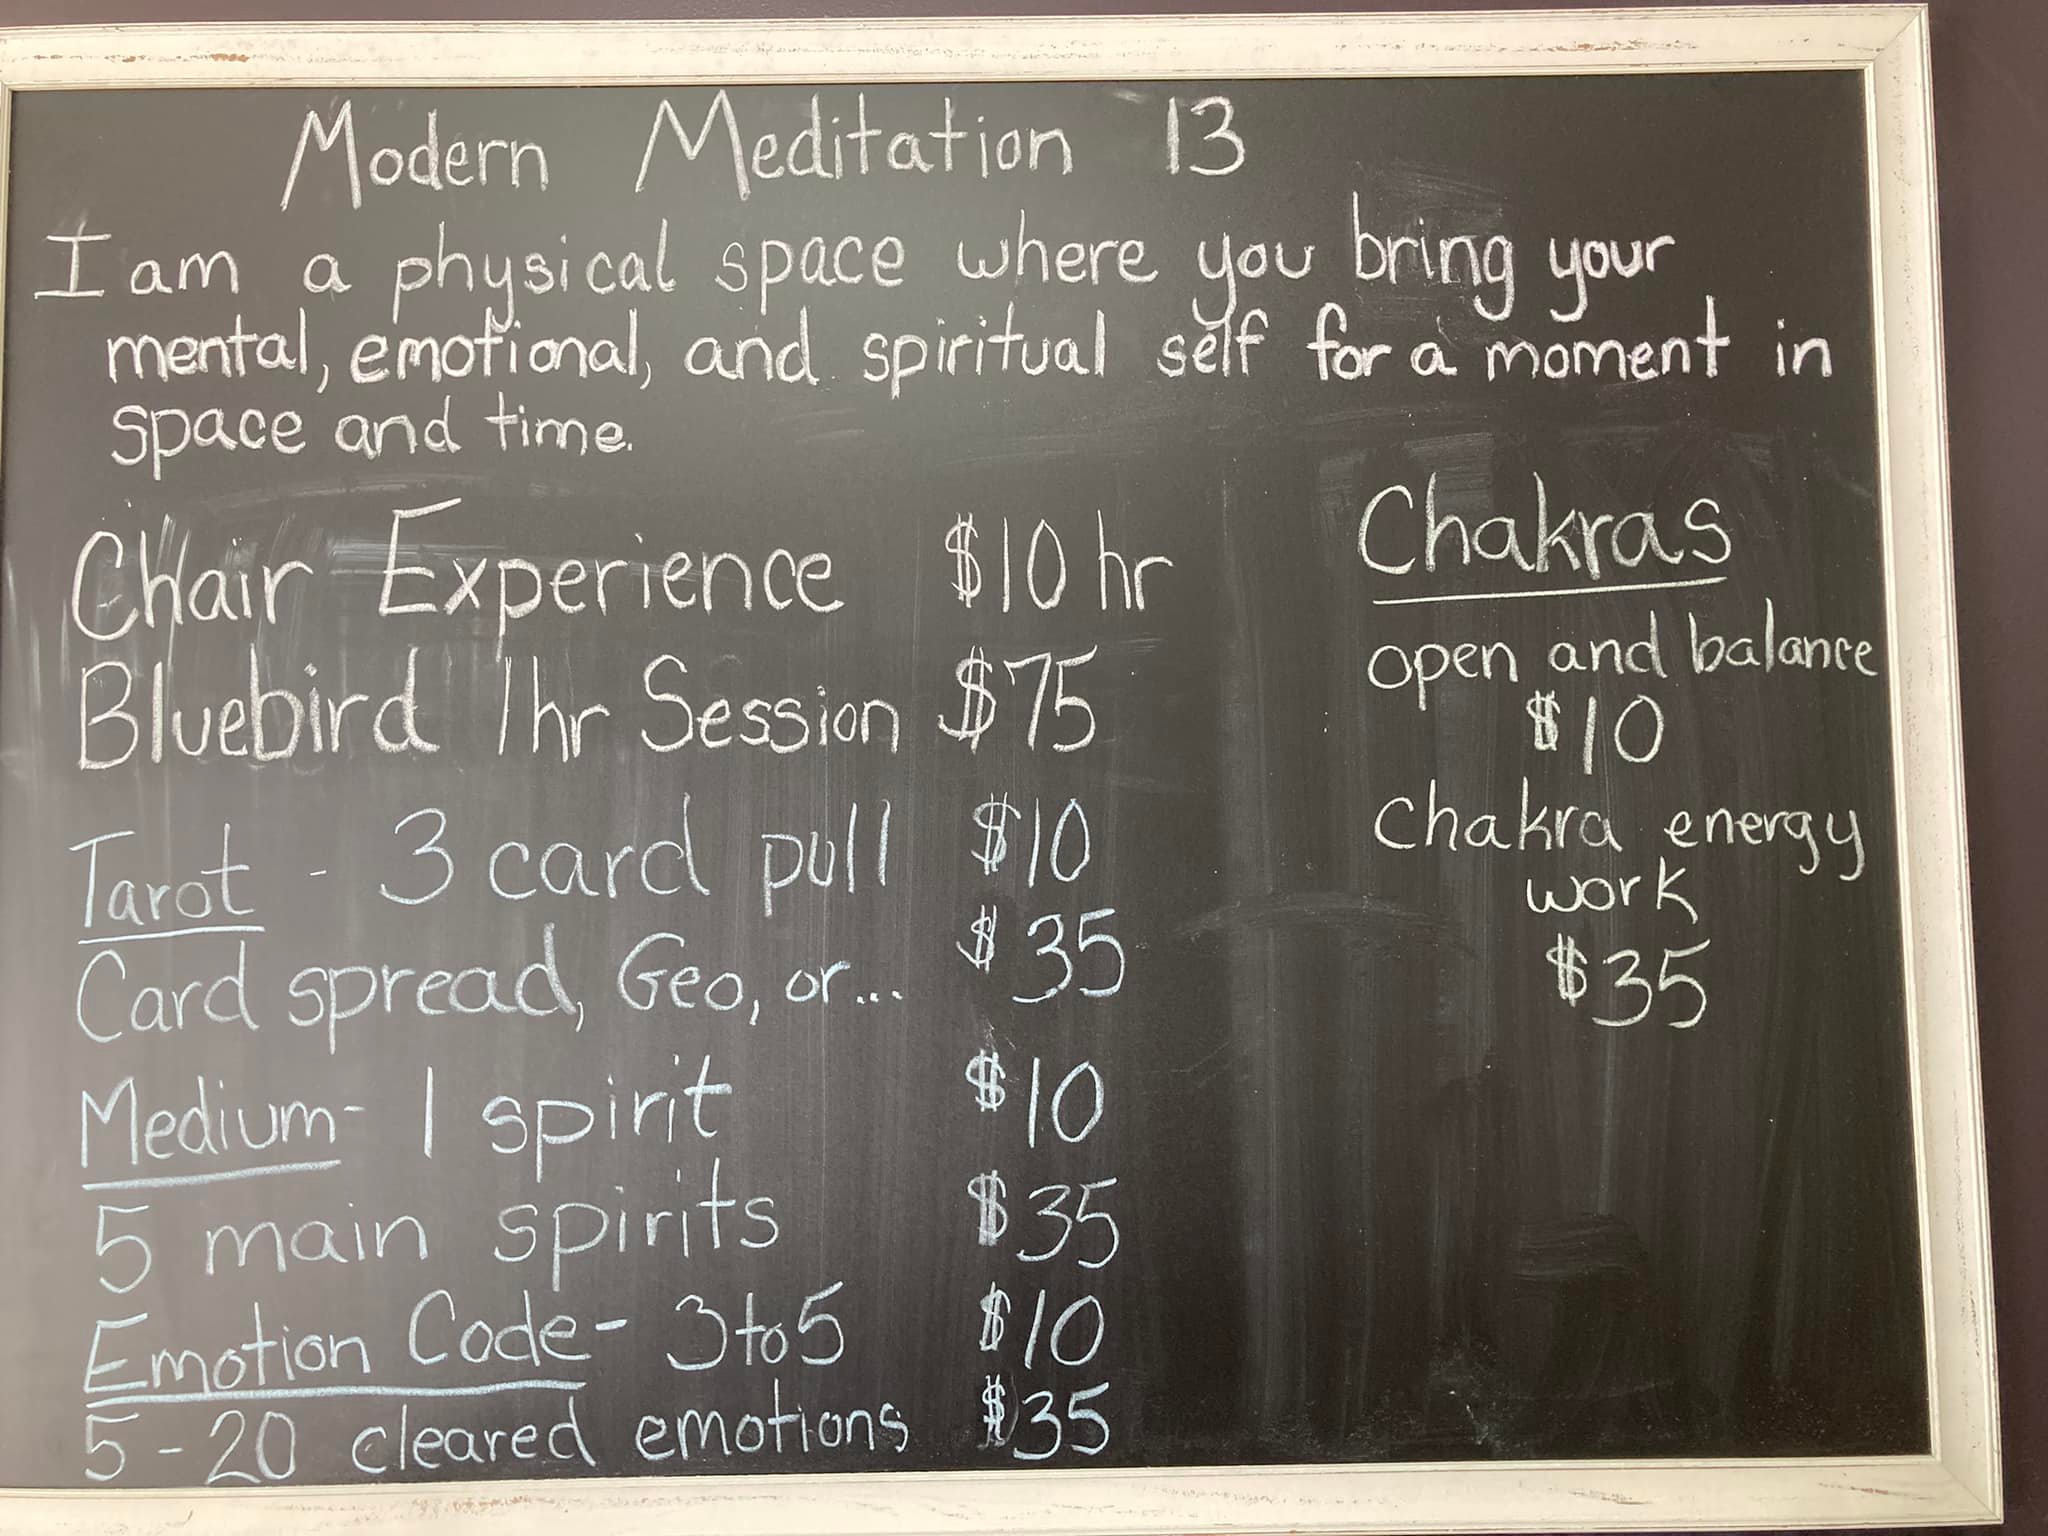 Modern Meditation 13
I am a physical space where you bring your
mental, emotional, and spiritual self for a moment in
space and time.
Chair Experience $10 hr
Bluebird 1hr Session $75
Tarot - 3 card pull $10
Card spread, Geo, or... $35
Medium - 1 spirit $10
5 main spirits $35
Emotion Code - 3 to 5 $10
5 - 20 cleared emotions $35
Chakras
open and balance
$10
chakra energy
work
$35